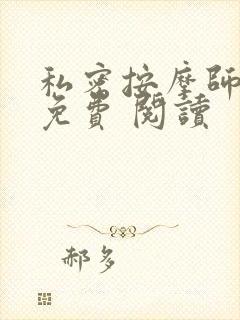 私密按摩師
免費 閱讀
郝多